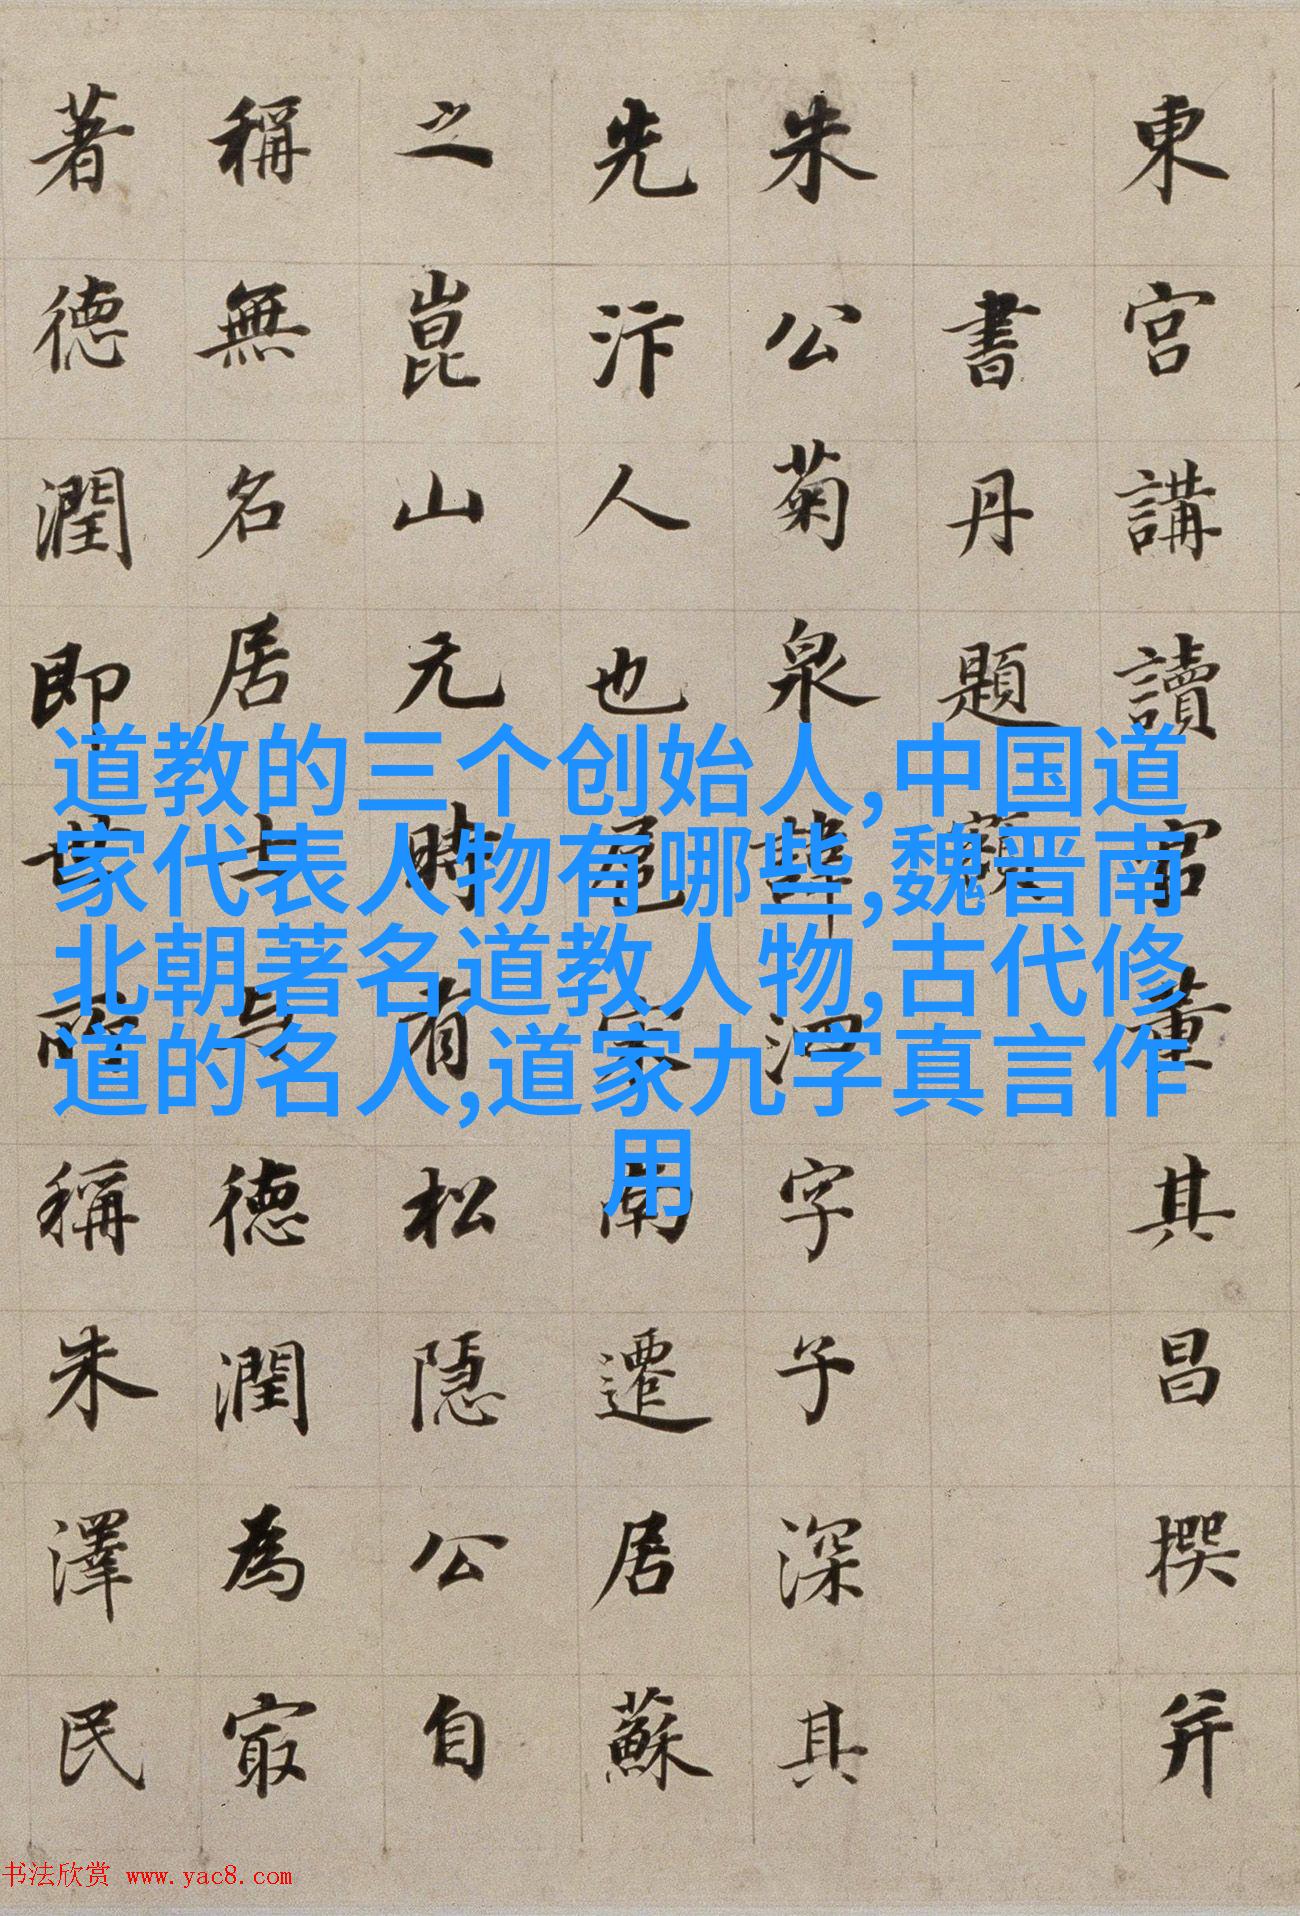 東宮講讀官董其昌撰并
書丹題額
朱公菊泉諱泗字子深其
先汴人也扈宋南遷居蘇
之崑山元時有松隱公自
稱無名居士与德潤為冣
著德潤即世所稱朱澤民
道教的三个创始人,中国道
家代表人物有哪些,魏晋南
北朝著名道教人物,古代修
道的名人,道家九字真言作
用
书法欣赏 www.yac8.com